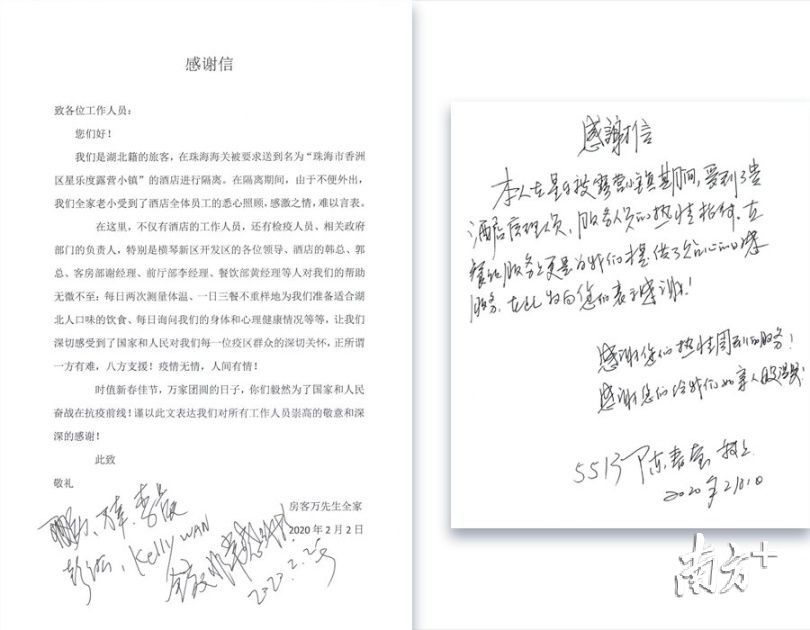 感谢信
致各位工作人员:
您们好!
我们是湖北籍的旅客,在珠海海关被要求送到名为“珠海市香洲
区星乐度露营小镇”的酒店进行隔离。在隔离期间,由于不便外出,
我们全家老小受到了酒店全体员工的悉心照顾,感激之情,难以言表。
在这里,不仅有酒店的工作人员,还有检疫人员、相关政府
部门的负责人,特别是横琴新区开发区的各位领导、酒店的韩总、郭
总、客房部谢经理、前厅部李经理、餐饮部黄经理等人对我们的帮助
无微不至:每日两次测量体温、一日三餐不重样地为我们准备适合湖
北人口味的饮食、每日询问我们的身体和心理健康情况等等,让我们
深切感受到了国家和人民对我们每一位疫区群众的深切关怀,正所谓
一方有难,八方支援!疫情无情,人间有情!
时值新春佳节,万家团圆的日子,你们毅然为了国家和人民
奋战在抗疫前线!谨以此文表达我们对所有工作人员崇高的敬意和深
深的感谢!
此致
敬礼
房客万先生全家
2020 年 2 月 2 日
Kelly WAN
2020.2.2
感謝信
本人在星乐度露营小镇期间,受到了贵
酒店管理人员、服务人员的热情招待,在
服务上更是为我们提供了
服务,在此 向您们表示感谢!
感谢您们热情周到的服务!
感谢您们给我们如亲人般温暖!
5513 陈春 敬上
2020年2月10
南方+